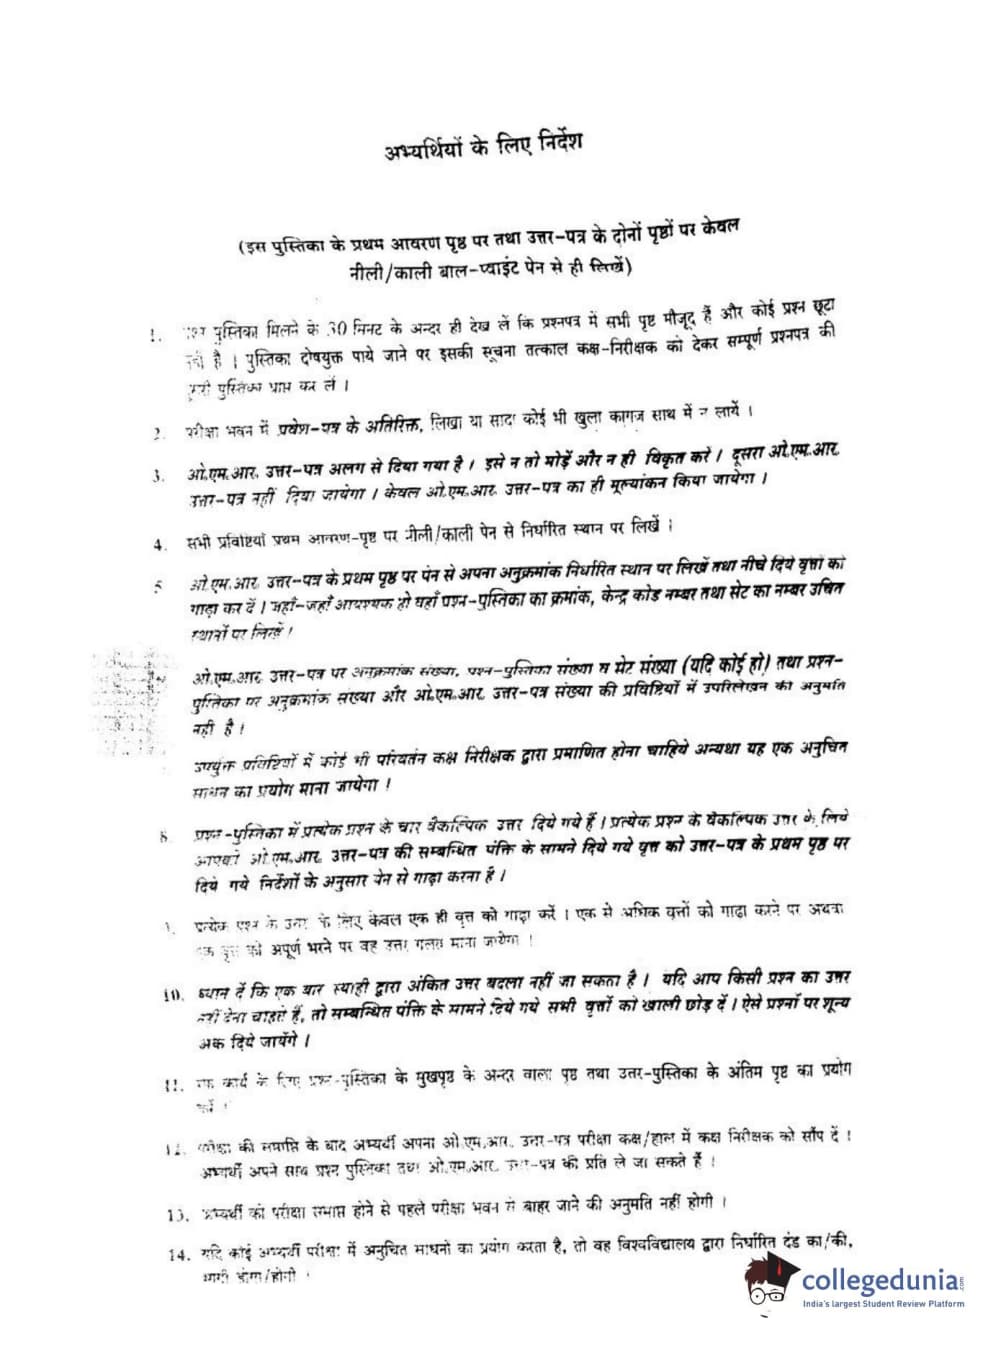 अभ्यर्थियों के लिए निर्देश
(इस पुस्तिका के प्रथम आवरण पृष्ठ पर तथा उत्तर-पत्र के दोनों पृष्ठों पर केवल
नीली/काली बाल-प्वाइंट पेन से ही लिखें)
1. पुस्तिका मिलने के 30 मिनट के अन्दर ही देख लें कि प्रश्नपत्र में सभी पृष्ठ मौजूद हैं और कोई प्रश्न छूटा
नहीं है । पुस्तिका दोषयुक्त पाये जाने पर इसकी सूचना तत्काल कक्ष-निरीक्षक को देकर सम्पूर्ण प्रश्नपत्र की
दूसरी पुस्तिका प्राप्त कर लें ।
2. परीक्षा भवन में प्रवेश-पत्र के अतिरिक्त, लिखा या सादा कोई भी खुला कागज साथ में न लायें ।
3. ओ.एम.आर. उत्तर-पत्र अलग से दिया गया है । इसे न तो मोड़ें और न ही विकृत करें । दूसरा ओ.एम.आर.
उत्तर-पत्र नहीं दिया जायेगा । केवल ओ.एम.आर. उत्तर-पत्र का ही मूल्यांकन किया जायेगा ।
4. सभी प्रविष्टियाँ प्रथम आवरण-पृष्ठ पर नीली/काली पेन से निर्धारित स्थान पर लिखें ।
5 ओ.एम.आर. उत्तर-पत्र के प्रथम पृष्ठ पर पेन से अपना अनुक्रमांक निर्धारित स्थान पर लिखें तथा नीचे दिये वृत्तों को
गाढ़ा कर दें । जहाँ-जहाँ आवश्यक हो वहाँ प्रश्न-पुस्तिका का क्रमांक, केन्द्र कोड नम्बर तथा सेट का नम्बर उचित
स्थानों पर लिखें ।
ओ.एम.आर. उत्तर-पत्र पर अनुक्रमांक संख्या, प्रश्न-पुस्तिका संख्या व सेट संख्या (यदि कोई हो) तथा प्रश्न-
पुस्तिका पर अनुक्रमांक संख्या और ओ.एम.आर. उत्तर-पत्र संख्या की प्रविष्टियों में उपरिलेखन की अनुमति
नहीं है ।
उपर्युक्त प्रविष्टियों में कोई भी परिवर्तन कक्ष निरीक्षक द्वारा प्रमाणित होना चाहिये अन्यथा यह एक अनुचित
साधन का प्रयोग माना जायेगा ।
8. प्रश्न-पुस्तिका में प्रत्येक प्रश्न के चार वैकल्पिक उत्तर दिये गये हैं । प्रत्येक प्रश्न के वैकल्पिक उत्तर के लिये
आपको ओ.एम.आर. उत्तर-पत्र की सम्बन्धित पंक्ति के सामने दिये गये वृत्त को उत्तर-पत्र के प्रथम पृष्ठ पर
दिये गये निर्देशों के अनुसार पेन से गाढ़ा करना है ।
प्रत्येक प्रश्न के उत्तर के लिए केवल एक ही वृत्त को गाढ़ा करें । एक से अधिक वृत्तों को गाढ़ा करने पर अथवा
एक वृत्त को अपूर्ण भरने पर वह उत्तर गलत माना जायेगा ।
10. ध्यान दें कि एक बार स्याही द्वारा अंकित उत्तर बदला नहीं जा सकता है । यदि आप किसी प्रश्न का उत्तर
नहीं देना चाहते हैं, तो सम्बन्धित पंक्ति के सामने दिये गये सभी वृत्तों को खाली छोड़ दें । ऐसे प्रश्नों पर शून्य
अंक दिये जायेंगे ।
11. रफ कार्य के लिए प्रश्न-पुस्तिका के मुखपृष्ठ के अन्दर वाला पृष्ठ तथा उत्तर-पुस्तिका के अंतिम पृष्ठ का प्रयोग
करें ।
12. परीक्षा की समाप्ति के बाद अभ्यर्थी अपना ओ.एम.आर. उत्तर-पत्र परीक्षा कक्ष/हाल में कक्ष निरीक्षक को सौंप दें ।
अभ्यर्थी अपने साथ प्रश्न पुस्तिका तथा ओ.एम.आर. उत्तर-पत्र की प्रति ले जा सकते हैं ।
13. अभ्यर्थी को परीक्षा समाप्त होने से पहले परीक्षा भवन से बाहर जाने की अनुमति नहीं होगी ।
14. यदि कोई अभ्यर्थी परीक्षा में अनुचित साधनों का प्रयोग करता है, तो वह विश्वविद्यालय द्वारा निर्धारित दंड का/की,
भागी होगा/होगी ।
collegedunia.com
India's largest Student Review Platform